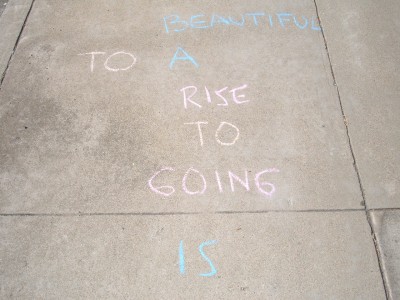 BEAUTIFUL
TO A
RISE
TO
GOING
IS